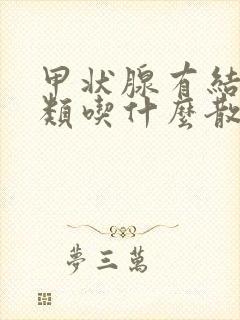 甲状腺有結
類喫什麼散
夢三萬